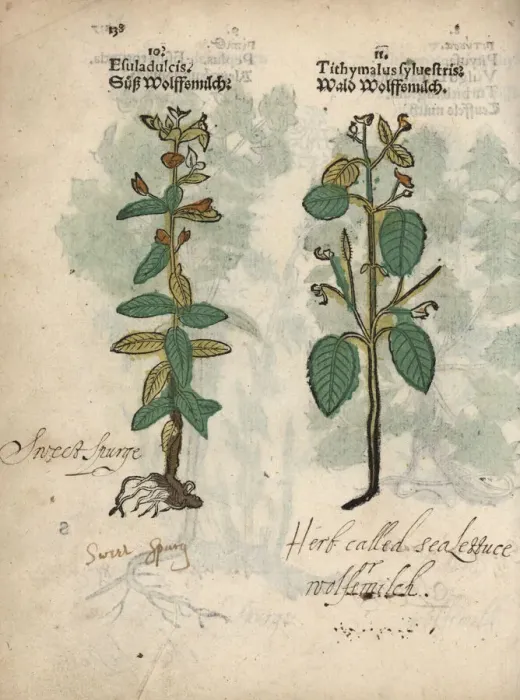 138
10.
Esula dulcis.
Süß Wolffsmilch.
11.
Tithymalus sylvestris.
Wald Wolffsmilch.
Sweet Spurge
Sweet Spurg
Herb called sea Lettuce
wolfsmilch.